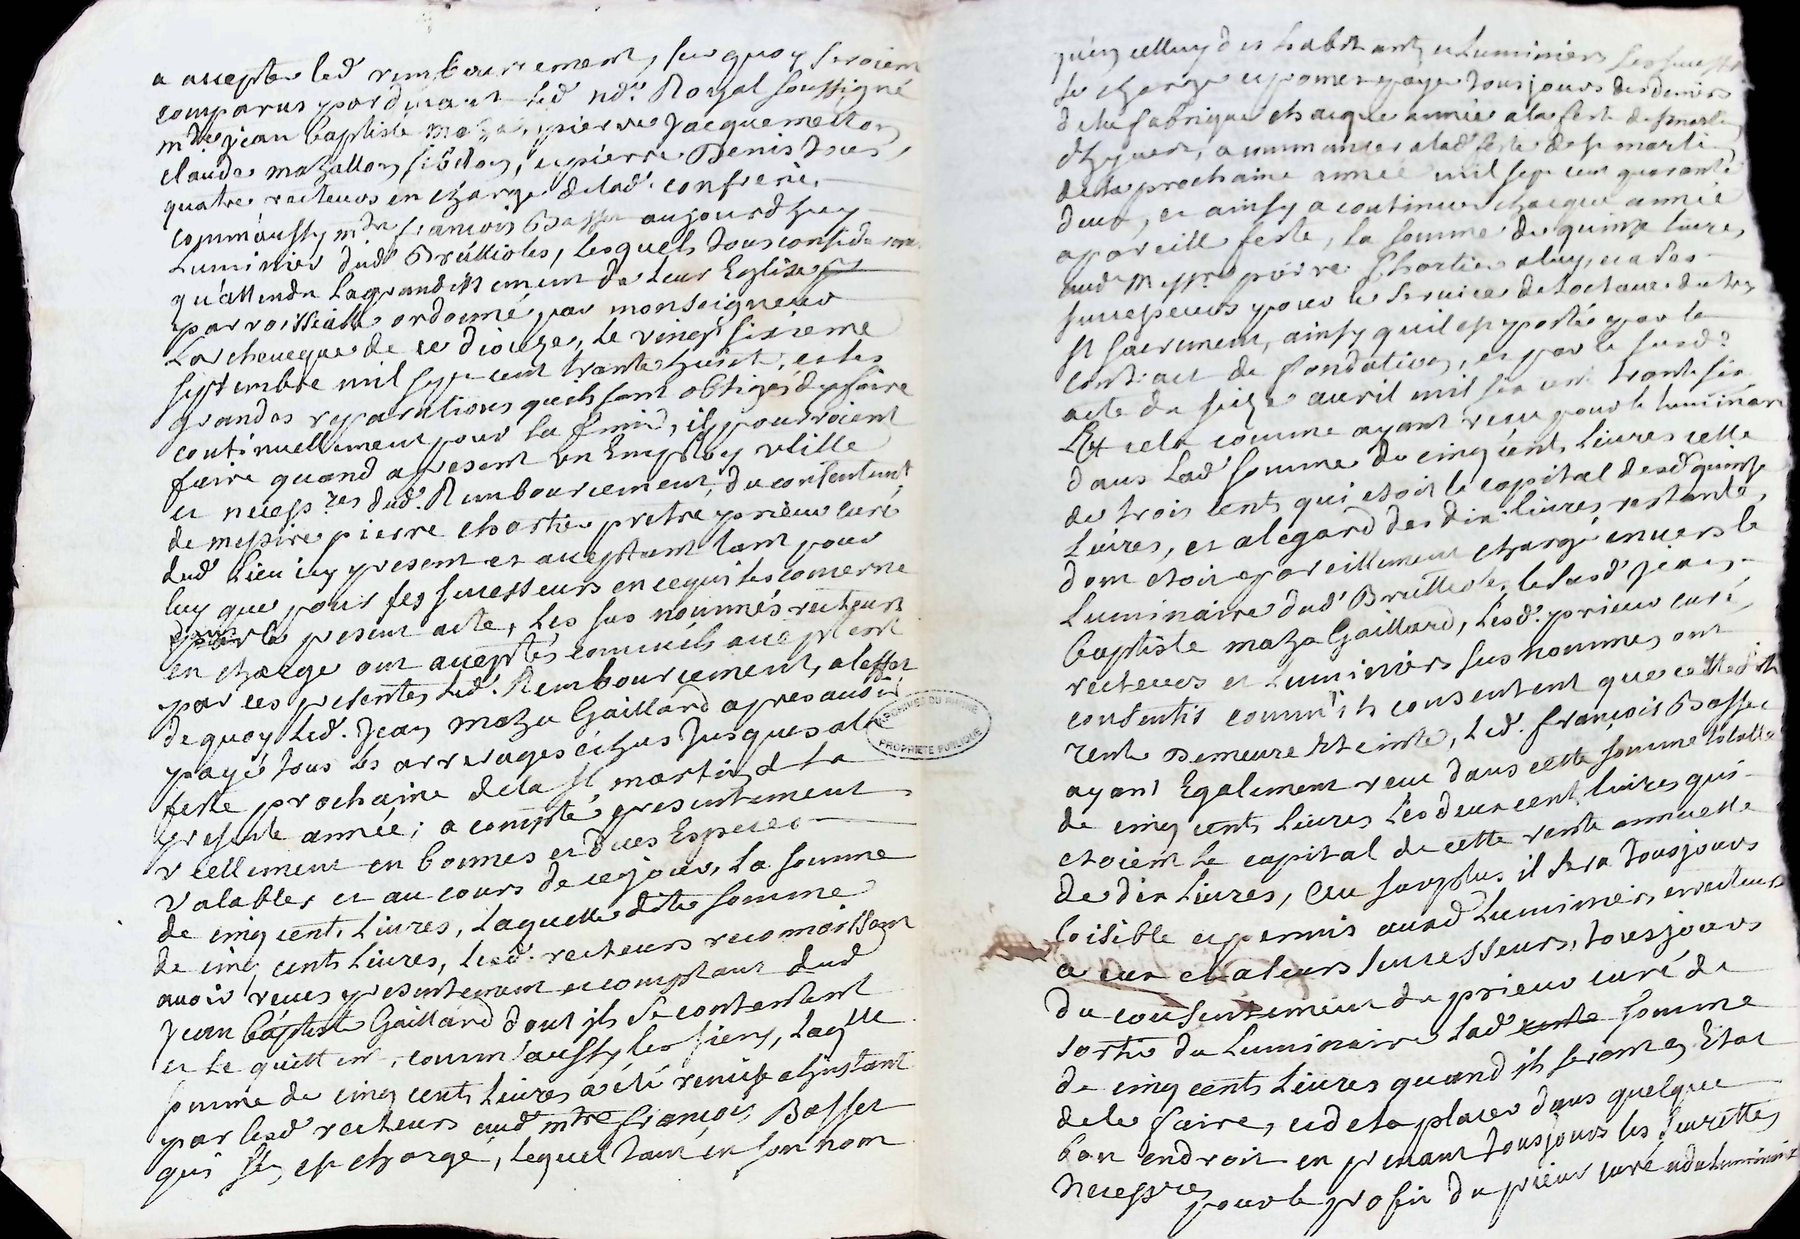 a accepté led. rembourcement, sur quoy seroient
comparus pardevant led. nd.re Royal soussigné
m.tre jean baptiste maza, pierre Jacquemetton
claude mazallon, et pierre Denis tous
quatre recteurs en charge de lad. confrerie,
comm'aussy m.tre françois Basset aujourdhuy
Luminier dud. Brullioles, lesquels tous considerant
qu'attendu lagrandissement de leur Eglise
parroissialle ordonné par monseigneur
Larcheveque de ce dioceze, le vingt sixieme
septembre mil sept cent trante huict, et les
grandes reparations qu'ils sont obligés dy faire
continuellement pour la finir, ils pourroient
faire quand a present un Employ utille
et necess.res dud. Rembourcement, du consentem.t
de messire pierre chartier pretre prieur curé
dud. lieu icy present et acceptant tant pour
luy que pour ses successeurs en ce qui les concerne
par le present acte, les sus nommés recteurs
en charge ont acceptés comm'ils acceptent
par ces presentes led. Rembourcement, a leffet
de quoy led. Jean maza Gaillard apres avoir
payé tous les arrerages échus jusques a la
feste prochaine de la st martin de la
presente année; a compté presentement
reellement en bonnes et dues Especes
valables et au cours de ce jour, la somme
de cinq cents livres, laquelle dite somme
de cinq cents livres, lesd. recteurs reconnoissent
avoir receus presentement et comptant dud.
Jean baptiste Gaillard dont ils se contentent
et le quittent, comm'aussy les siens, laq.lle
somme de cinq cents livres a été remise a linstant
par lesd. recteurs aud. m.tre françois Basset
qui s'en est chargé, lequel tant en son nom
qu'en celluy des habitants et luminiers
se charge et promet payer tousjours des deniers
de la fabrique chaque année a la feste de st martin
dhyver, a commancer a lad. feste de st martin
de la prochaine année mil sept cent quarante
deux, et ainsy a continuer chaque année
a pareille feste, la somme de quinze livres
aud. mess.re pierre Chartier a luy, et a ses
successeurs pour le service de loctave du tres
st sacrement, ainsy qu'il est porté par le
contract de fondation, et par le susd.
acte du seize avril mil six cent trante six
Et cela comme ayant receu pour le luminaire
dans lad. somme de cinq cents livres celle
de trois cents qui etoit le capital desd. quinze
livres, et a legard des dix livres restantes
dont etoit pareillement chargé envers le
Luminaire dud. Brullioles, le susd. jean
baptiste maza Gaillard, lesd. prieur curé,
recteurs et Luminiers sus nommés ont
consentis comm'ils consentent que cette ditte
rente Demeure Eteinte, led. françois Basset
ayant Egalement receu dans cette somme totalle
de cinq cents livres les deux cent livres qui
etoient le capital de cette rente annuelle
de dix Livres, au surplus il sera tousjours
loisible et permis auxd. luminiers, et recteurs
a eux et a leurs successeurs, tousjours
du consentement du prieur curé de
sortir du luminaire lad. rente somme
de cinq cents livres quand ils seront en Etat
de le faire, et de la placer dans quelque
bon endroit en prenant tousjours les suretés
necess.res pour le profit du prieur curé et du luminaire
ARCHIVES DU RHÔNE
PROPRIÉTÉ PUBLIQUE